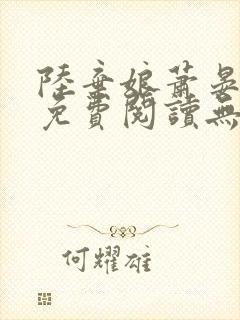 陸棄娘蕭晏
免費閱讀無
何耀雄